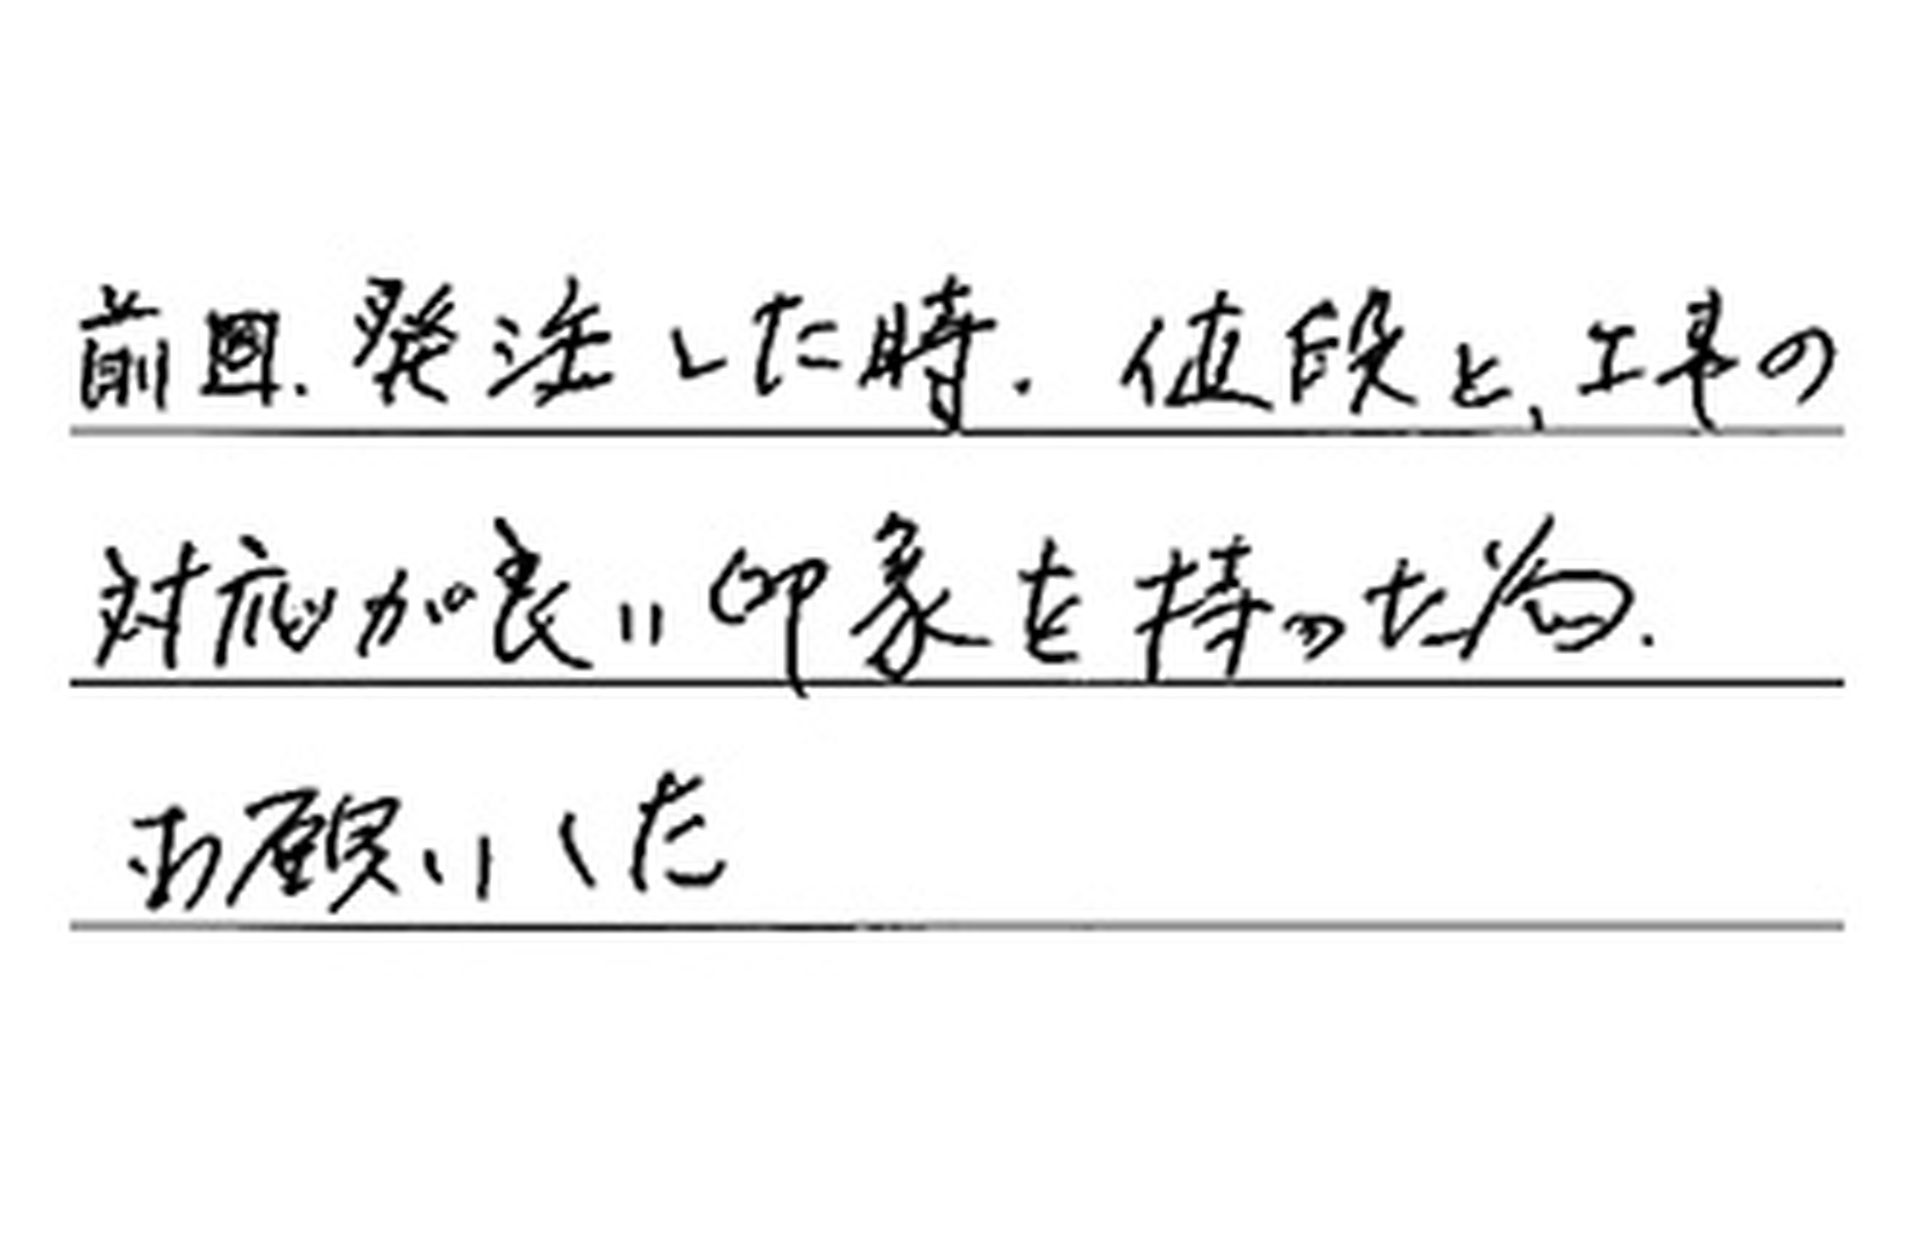 前回、発注した時、値段と、工事の
対応が良い印象を持った為、
お願いした